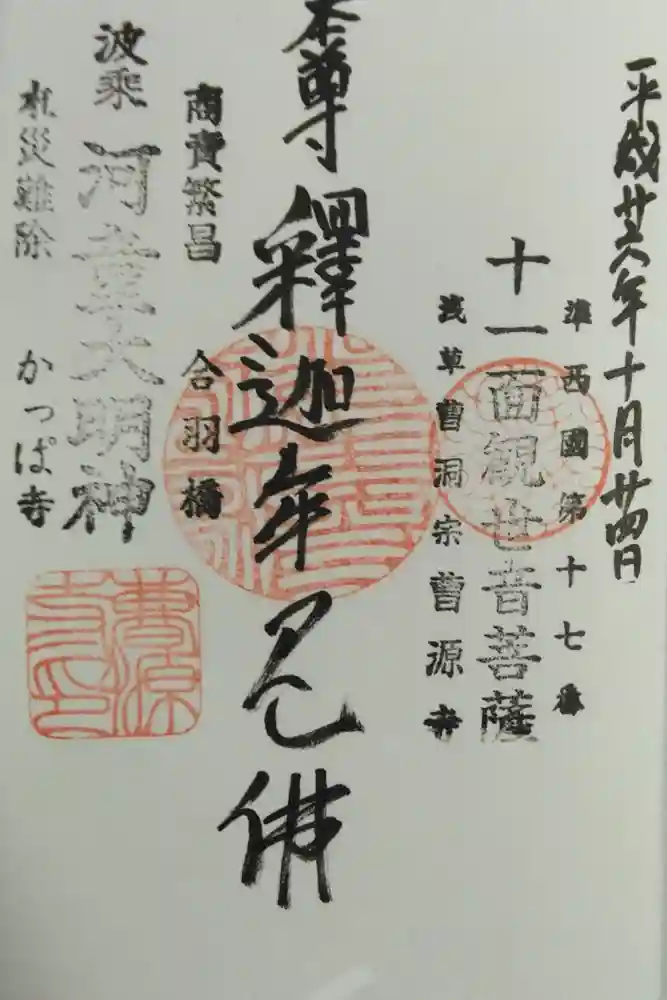 平成廿六年十月廿四日
準西國第十七番
十一面観世音菩薩
浅草曹洞宗曹源寺
本尊 釋迦牟尼佛
商賣繁昌 合羽橋
波乗 河童大明神
水災難除 かっぱ寺
曹源寺印